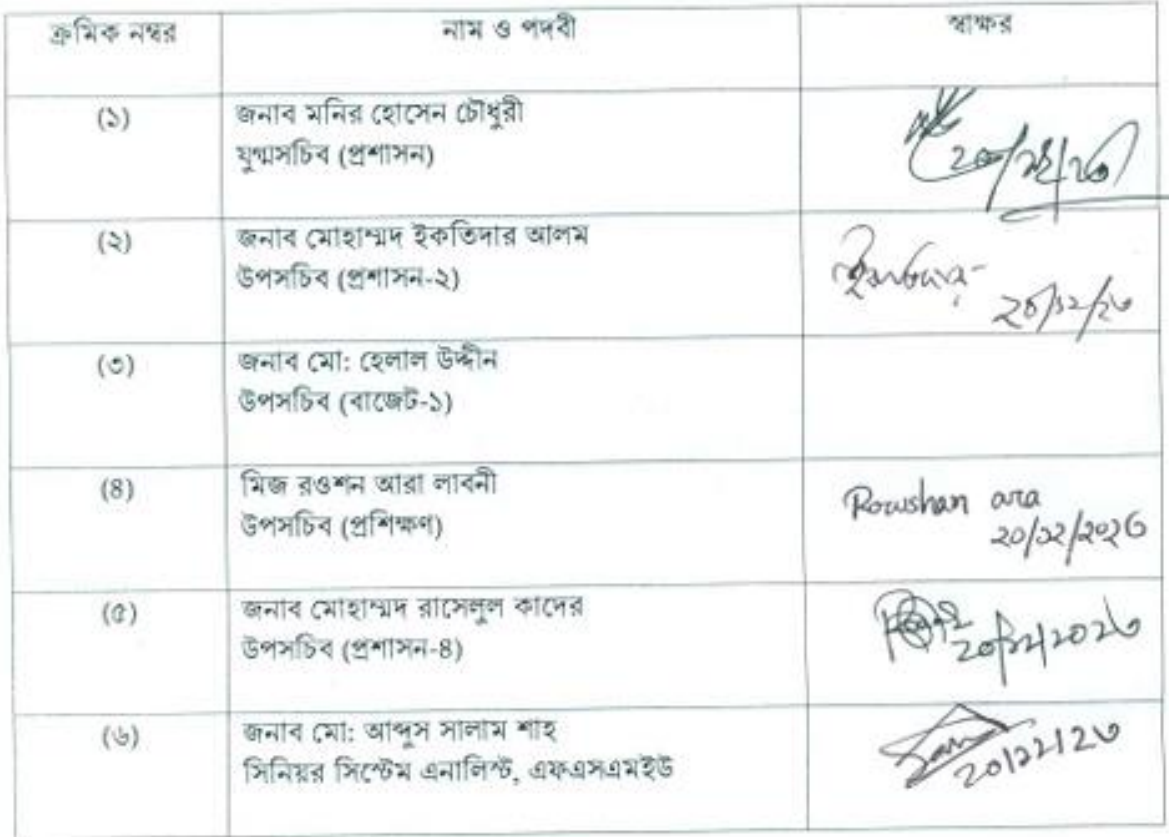 ক্রমিক নম্বর নাম ও পদবী স্বাক্ষর
(১) জনাব মনির হোসেন চৌধুরী
যুগ্মসচিব (প্রশাসন)
(২) জনাব মোহাম্মদ ইকতিদার আলম
উপসচিব (প্রশাসন-২)
২০/১২/২৩
(৩) জনাব মো: হেলাল উদ্দীন
উপসচিব (বাজেট-১)
(৪) মিজ রওশন আরা লাবনী Rowshan ara
উপসচিব (প্রশিক্ষণ) ২০/১২/২০২৩
(৫) জনাব মোহাম্মদ রাসেলুল কাদের
উপসচিব (প্রশাসন-৪) ২০/১২/২০২৩
(৬) জনাব মো: আব্দুস সালাম শাহ
সিনিয়র সিস্টেম এনালিস্ট, এফএসএমইউ ২০/১২/২৩